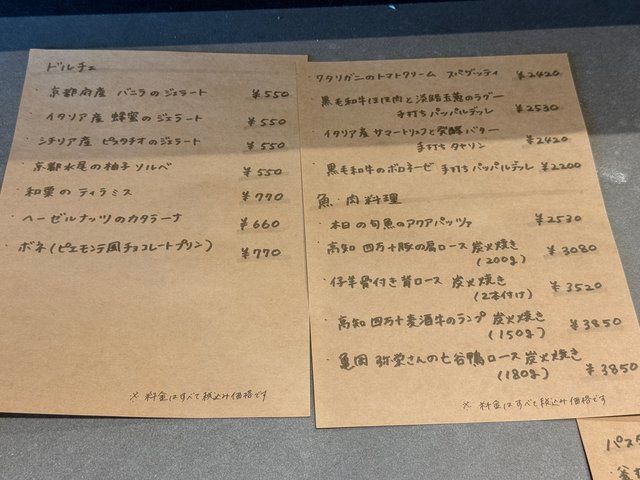 ドルチェ
京都府産 バニラのジェラート ¥550
イタリア産 蜂蜜のジェラート ¥550
シチリア産 ピスタチオのジェラート ¥550
京都水尾の柚子ソルベ ¥550
和栗のティラミス ¥770
ヘーゼルナッツのカタラーナ ¥660
ボネ(ピエモンテ風チョコレートプリン) ¥770
※ 料金はすべて税込み価格です
ワタリガニのトマトクリーム スパゲッティ ¥2420
黒毛和牛ほほ肉と淡路玉葱のラグー
手打ちパッパルデッレ ¥2530
イタリア産サマートリュフと発酵バター
手打ちタヤリン ¥2420
黒毛和牛のボロネーゼ 手打ちパッパルデッレ ¥2200
魚 肉料理
本日の旬魚のアクアパッツァ ¥2530
高知 四万十豚の肩ロース 炭火焼き
(200g) ¥3080
仔羊骨付き背ロース 炭火焼き
(2本付け) ¥3520
高知 四万十麦酒牛のランプ 炭火焼き
(150g) ¥3850
亀岡 弥栄さんの七谷鴨ロース 炭火焼き
(180g) ¥3850
※ 料金はすべて税込み価格です
パスタ